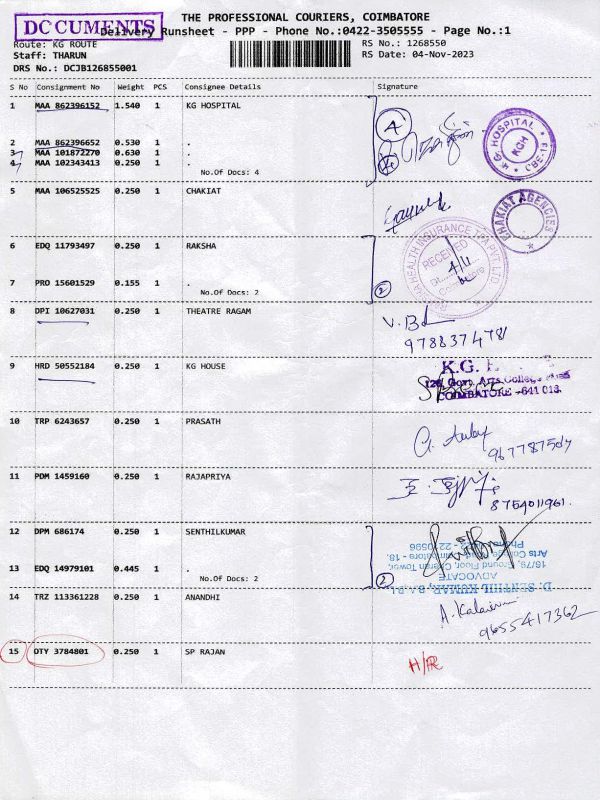 DCCUMENTS
THE PROFESSIONAL COURIERS, COIMBATORE
Delivery Runsheet - PPP - Phone No.:0422-3505555 - Page No.:1
Route: KG ROUTE RS No.: 1268550
Staff: THARUN RS Date: 04-Nov-2023
DRS No.: DCJB126855001
S No Consignment No Weight PCS Consignee Details Signature
1 MAA 862396152 1.540 1 KG HOSPITAL
4
K.G. HOSPITAL
KGH
CBE-13
2 MAA 862396652 0.530 1 .
3 MAA 101872270 0.630 1 .
4 MAA 102343413 0.250 1 .
No.Of Docs: 4
5 MAA 106525525 0.250 1 CHAKIAT
CHAKIAT AGENCIES
6 EDQ 11793497 0.250 1 RAKSHA
RAKSHA HEALTH INSURANCE TPA PVT LTD
RECEIVED
4/11
7 PRO 15601529 0.155 1 .
No.Of Docs: 2
2
8 DPI 10627031 0.250 1 THEATRE RAGAM
9788374781
9 HRD 50552184 0.250 1 KG HOUSE
K.G.
Govt. Arts College
COIMBATORE - 641 018.
10 TRP 6243657 0.250 1 PRASATH
11 PDM 1459160 0.250 1 RAJAPRIYA
8754011961.
12 DPM 686174 0.250 1 SENTHILKUMAR
13 EDQ 14979101 0.445 1 .
No.Of Docs: 2
2
D. SENTHIL KUMAR,
ADVOCATE
Ground Floor, Tower,
Arts College
14 TRZ 113361228 0.250 1 ANANDHI
9655417362
15 OTY 3784801 0.250 1 SP RAJAN